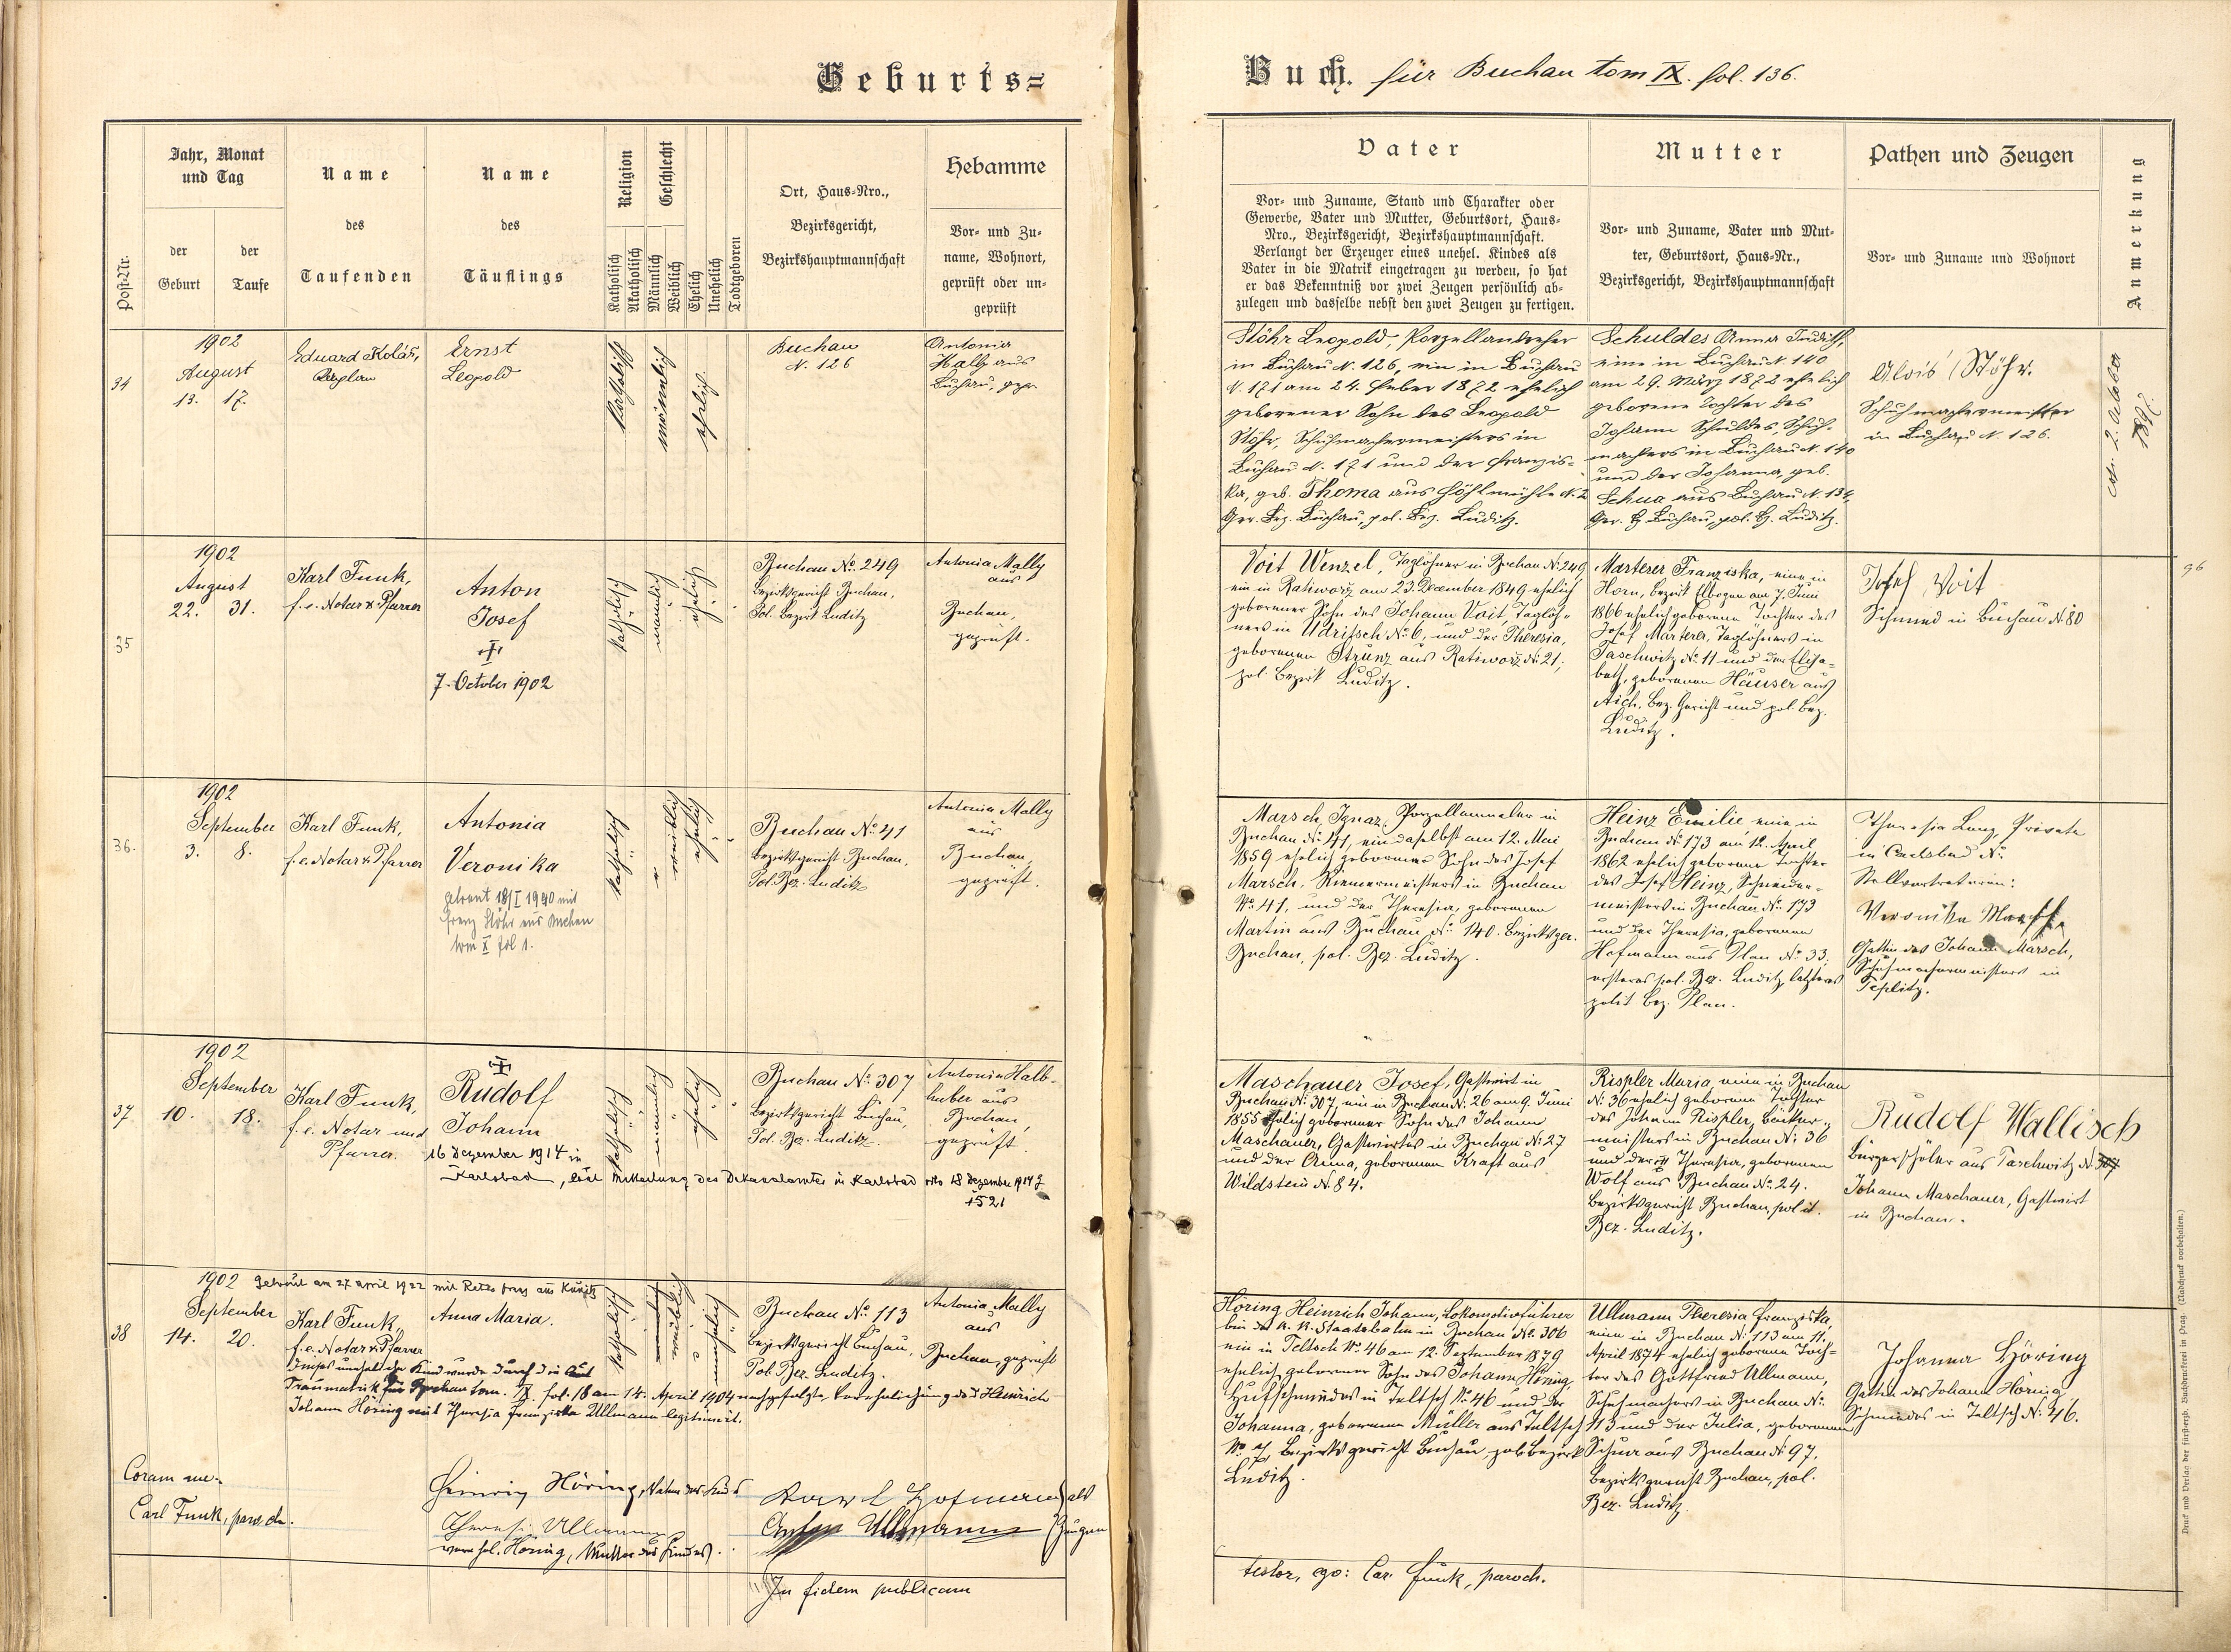 Geburts=
Buch. für Buchau tom IX. fol. 136.
Post-Nr.
Jahr, Monat
und Tag
der
Geburt
der
Taufe
Name
des
Taufenden
Name
des
Täuflings
Religion
Katholisch
Akatholisch
Geschlecht
Männlich
Weiblich
Ehelich
Unehelich
Todtgeboren
Ort, Haus=Nro.,
Bezirksgericht,
Bezirkshauptmannschaft
Hebamme
Vor= und Zu=
name, Wohnort,
geprüft oder un=
geprüft
Vater
Vor= und Zuname, Stand und Charakter oder
Gewerbe, Vater und Mutter, Geburtsort, Haus=
Nro., Bezirksgericht, Bezirkshauptmannschaft.
Verlangt der Erzeuger eines unehel. Kindes als
Vater in die Matrik eingetragen zu werden, so hat
er das Bekenntniß vor zwei Zeugen persönlich ab=
zulegen und dasselbe nebst den zwei Zeugen zu fertigen.
Mutter
Vor= und Zuname, Vater und Mut=
ter, Geburtsort, Haus=Nr.,
Bezirksgericht, Bezirkshauptmannschaft
Pathen und Zeugen
Vor= und Zuname und Wohnort
Anmerkung
34
1902
August
13. 17.
Eduard Kolář,
Kaplan
Ernst
Leopold
katholisch
männlich
ehelich
Buchau
N. 126
Antonia
Mally aus
Buchau, gepr.
Stöhr Leopold, Porzellandreher
in Buchau N. 126, ein in Buchau
N. 171 am 24. Feber 1872 ehelich
geborener Sohn des Leopold
Stöhr, Schuhmachermeisters in
Buchau N. 171 und der Franzis=
ka, geb. Thoma aus Höhlmühle N. 2
Ger. Bez. Buchau, pol. Bez. Luditz.
Schuldes Anna Judith,
eine in Buchau N. 140
am 29. März 1872 ehelich
geborene Tochter des
Johann Schuldes, Schuh=
machers in Buchau N. 140
und der Johanna, geb.
Schua aus Buchau N. 134,
Ger. Bz. Buchau, pol. Bz. Luditz.
Alois Stöhr.
Schuhmachermeister
in Buchau N. 126.
2. October
35
1902
August
22. 31.
Karl Funk,
f. e. Notar & Pfarrer
Anton
Josef
7. October 1902
katholisch
männlich
ehelich
Buchau No. 249
Bezirksgericht Buchau,
Pol. Bezirk Luditz
Antonia Mally
aus
Buchau,
geprüft.
Voit Wenzel, Taglöhner in Buchau No. 249
ein in Ratiworz am 23. December 1849 ehelich
geborener Sohn des Johann Voit, Taglöh=
ners in Udritsch No. 6, und der Theresia,
geborenen Strunz aus Ratiworz No. 21,
pol. Bezirk Luditz.
Marterer Franziska, eine in
Horn, Bezirk Elbogen am 7. Juni
1866 ehelich geborene Tochter des
Josef Marterer, Taglöhners in
Taschwitz No. 11 und der Elisa=
beth, geborenen Häuser aus
Aich, Bez. Gericht und pol. Bez.
Luditz.
Josef Voit
Schmied in Buchau N. 80
96
36.
1902
September
3. 8.
Karl Funk,
f. e. Notar & Pfarrer
Antonia
Veronika
getraut 18/I 1940 mit
Franz Stöhr aus Buchau
tom X fol 1.
katholisch
weiblich
ehelich
Buchau No. 41
Bezirksgericht Buchau,
Pol. Bez. Luditz
Antonia Mally
aus
Buchau,
geprüft.
Marsch Ignaz, Porzellanmaler in
Buchau No. 41, ein daselbst am 12. Mai
1859 ehelich geborener Sohn des Josef
Marsch, Riemermeisters in Buchau
No. 41, und der Theresia, geborenen
Martin aus Buchau No. 140. Bezirksger.
Buchau, pol. Bez. Luditz.
Heinz Emilie eine in
Buchau No. 173 am 12. April
1862 ehelich geborene Tochter
des Josef Heinz, Schneider=
meisters in Buchau No. 173
und der Theresia, geborenen
Hofmann aus Plan No. 33,
ersteres pol. Bez. Luditz letzteres
polit Bez. Plan.
Theresia Lenz, Private
in Carlsbad No.
Stellvertreterin:
Veronika Marsch
Gattin des Johann Marsch,
Schuhmachermeisters in
Teplitz.
37
1902
September
10. 18.
Karl Funk,
f. e. Notar und
Pfarrer.
Rudolf
Johann
16 Dezember 1914 in
Karlsbad, laut Mitteilung des Dekanalamtes in Karlsbad vto 18 Dezember 1914 Z
1521
katholisch
männlich
ehelich
Buchau No. 307
Bezirksgericht Buchau,
Pol. Bez. Luditz.
Antonia Halb=
huber aus
Buchau,
geprüft.
Maschauer Josef, Gastwirt in
Buchau No. 307, ein in Buchau No. 26 am 9. Juni
1855 ehelich geborener Sohn des Johann
Maschauer, Gastwirtes in Buchau No. 27
und der Anna, geborenen Kraft aus
Wildstein N. 84.
Rispler Maria, eine in Buchau
No. 36 ehelich geborene Tochter
des Johann Rispler, Bäcker=
meisters in Buchau No. 36
und der Theresia, geborenen
Wolf aus Buchau No. 24.
Bezirksgericht Buchau, polit.
Bez. Luditz.
Rudolf Wallisch
Bürgerschüler aus Taschwitz
Johann Maschauer, Gastwirt
in Buchau.
38
1902 Getraut am 27 April 1922 mit
September
14. 20.
Karl Funk,
f. e. Notar & Pfarrer
Anna Maria.
Dieses uneheliche Kind wurde durch die laut
Traumatrik für Buchau tom. IX fol. 16 am 14. April 1904 nachgefolgte Verehelichung des Heinrich
Johann Höring mit Theresia Franziska Ullmann legitimirt.
katholisch
weiblich
unehelich
Buchau No. 113
Bezirksgericht Buchau,
Pol. Bez. Luditz.
Antonia Mally
aus
Buchau, geprüft
Höring Heinrich Johann, Lokomotivführer
bei der k. k. Staatsbahn in Buchau No. 306
ein in Teltsch No. 46 am 12. September 1879
ehelich geborener Sohn des Johann Höring,
Hufschmiedes in Teltsch No. 46 und der
Johanna, geborenen Müller aus Teltsch
No. 7 Bezirksgericht Buchau, pol. Bezirk
Luditz.
Ullmann Theresia Franziska,
eine in Buchau No. 113 am 11.
April 1874 ehelich geborene Toch=
ter des Gottfried Ullmann,
Schuhmachers in Buchau No.
113 und der Julia, geborenen
Schua aus Buchau No. 97.
Bezirksgericht Buchau, pol.
Bez. Luditz.
Johanna Höring
Gattin des Johann Höring
Schmiedes in Teltsch No. 46.
Coram me.
Carl Funk, paroch.
Heinrich Höring, Vater des Kindes
Theresia Ullmann
verehel. Höring, Mutter des Kindes.
Karl Hofmann als
Anton Ullmann Zeugen
In fidem publicam
testor, ego: Car. Funk, paroch.
Druck und Verlag der fürsterzb. Buchdruckerei in Prag. (Nachdruck vorbehalten.)